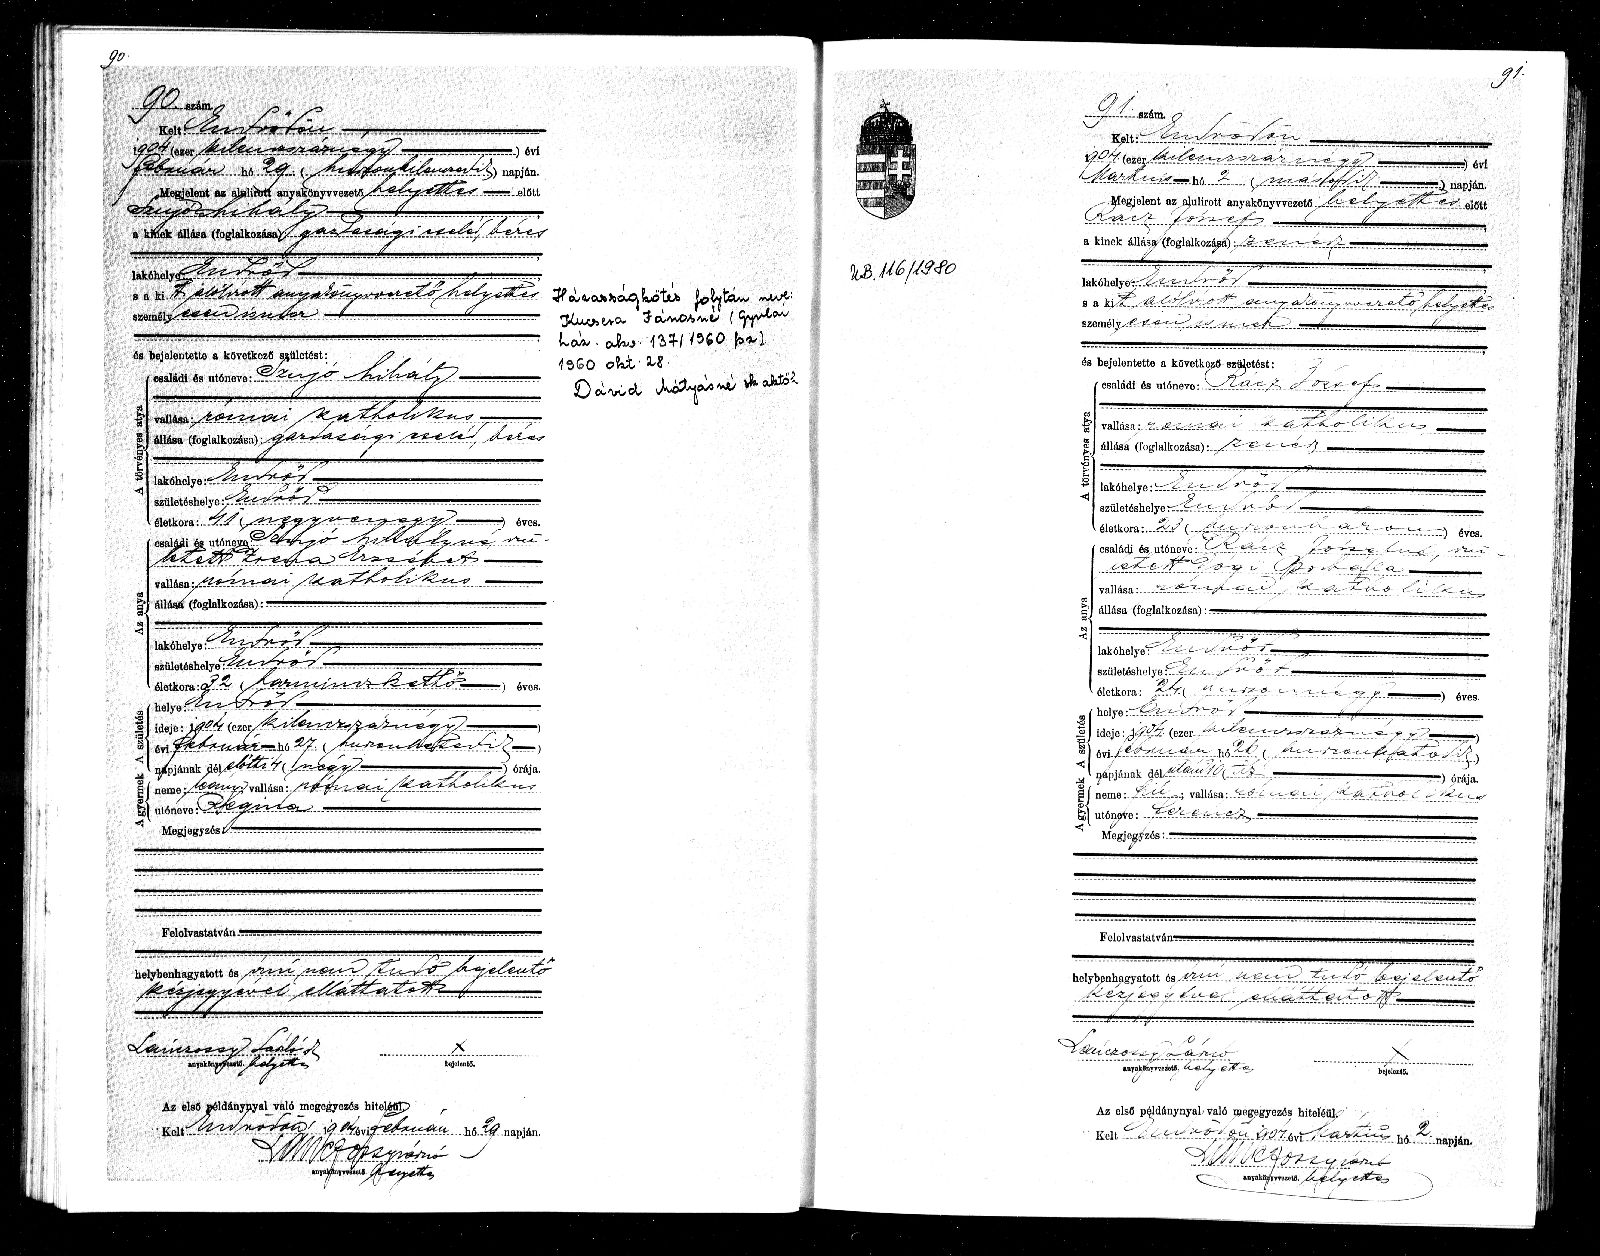 90.
90. szám.
Kelt: Endrődön
1904 (ezer kilencszáznégy) évi
február hó 29 (huszonkilencedik) napján.
Megjelent az alulirott anyakönyvvezető helyettes előtt
Szujó Mihály
a kinek állása (foglalkozása) gazdasági cseléd, béres
lakóhelye Endrőd
s a kit alólirott anyakönyvvezető helyettes
személyesen ismer
és bejelentette a következő születést:
A törvényes atya
családi és utóneve: Szujó Mihály
vallása: római katholikus
állása (foglalkozása): gazdasági cseléd, béres
lakóhelye: Endrőd
születéshelye: Endrőd
életkora: 41 (negyvenegy) éves.
Az anya
családi és utóneve Szujó Mihályné, szü-
letett Erzsébet
vallása: római katholikus
állása (foglalkozása):
lakóhelye: Endrőd
születéshelye: Endrőd
életkora: 32 (harminczkettő) éves.
A gyermek A születés
helye: Endrőd
ideje: 1904 (ezer kilencszáznégy)
évi február hó 27 (huszonhetedik)
napjának dél előtti 4 (négy) órája.
neme: leány; vallása: római katholikus
utóneve: Regina
Megjegyzés:
Felolvastatván
helybenhagyatott és irni nem tudó bejelentő
kézjegyével elláttatott
Lanczossy Sándor x
anyakönyvvezető. helyettes bejelentő.
Az első példánynyal való megegyezés hiteléül.
Kelt Endrődön 1904 évi Február hó 29 napján.
anyakönyvvezető. helyettes
Házasságkötés folytán neve:
Kucsera Jánosné (Gyulai
ház. akv. 137/1960 fsz)
1960 okt. 28.
Dávid Mátyásné
91.
U.B. 116/1980
91. szám.
Kelt: Endrődön
1904 (ezer kilencszáznégy) évi
Márczius hó 2 (második) napján.
Megjelent az alulirott anyakönyvvezető helyettes előtt
Rácz József
a kinek állása (foglalkozása): zenész
lakóhelye: Endrőd
s a kit alólirott anyakönyvvezető helyettes
személyesen ismer
és bejelentette a következő születést:
A törvényes atya
családi és utóneve: Rácz József
vallása: római katholikus
állása (foglalkozása): zenész
lakóhelye: Endrőd
születéshelye: Endrőd
életkora: 23 (huszonhárom) éves.
Az anya
családi és utóneve: Rácz Józsefné, szü-
letett Gógi Borbála
vallása: római katholikus
állása (foglalkozása):
lakóhelye: Endrőd
születéshelye: Endrőd
életkora: 24 (huszonnégy) éves.
A gyermek A születés
helye: Endrőd
ideje: 1904 (ezer kilencszáznégy)
évi február hó 26 (huszonhatodik)
napjának dél utáni 10 (tíz) órája.
neme: fiú; vallása: római katholikus
utóneve: Ferencz
Megjegyzés:
Felolvastatván
helybenhagyatott és irni nem tudó bejelentő
kézjegyével elláttatott
Lanczossy x
anyakönyvvezető. helyettes bejelentő.
Az első példánynyal való megegyezés hiteléül.
Kelt Endrődön 1904 évi Márczius hó 2 napján.
anyakönyvvezető. helyettes